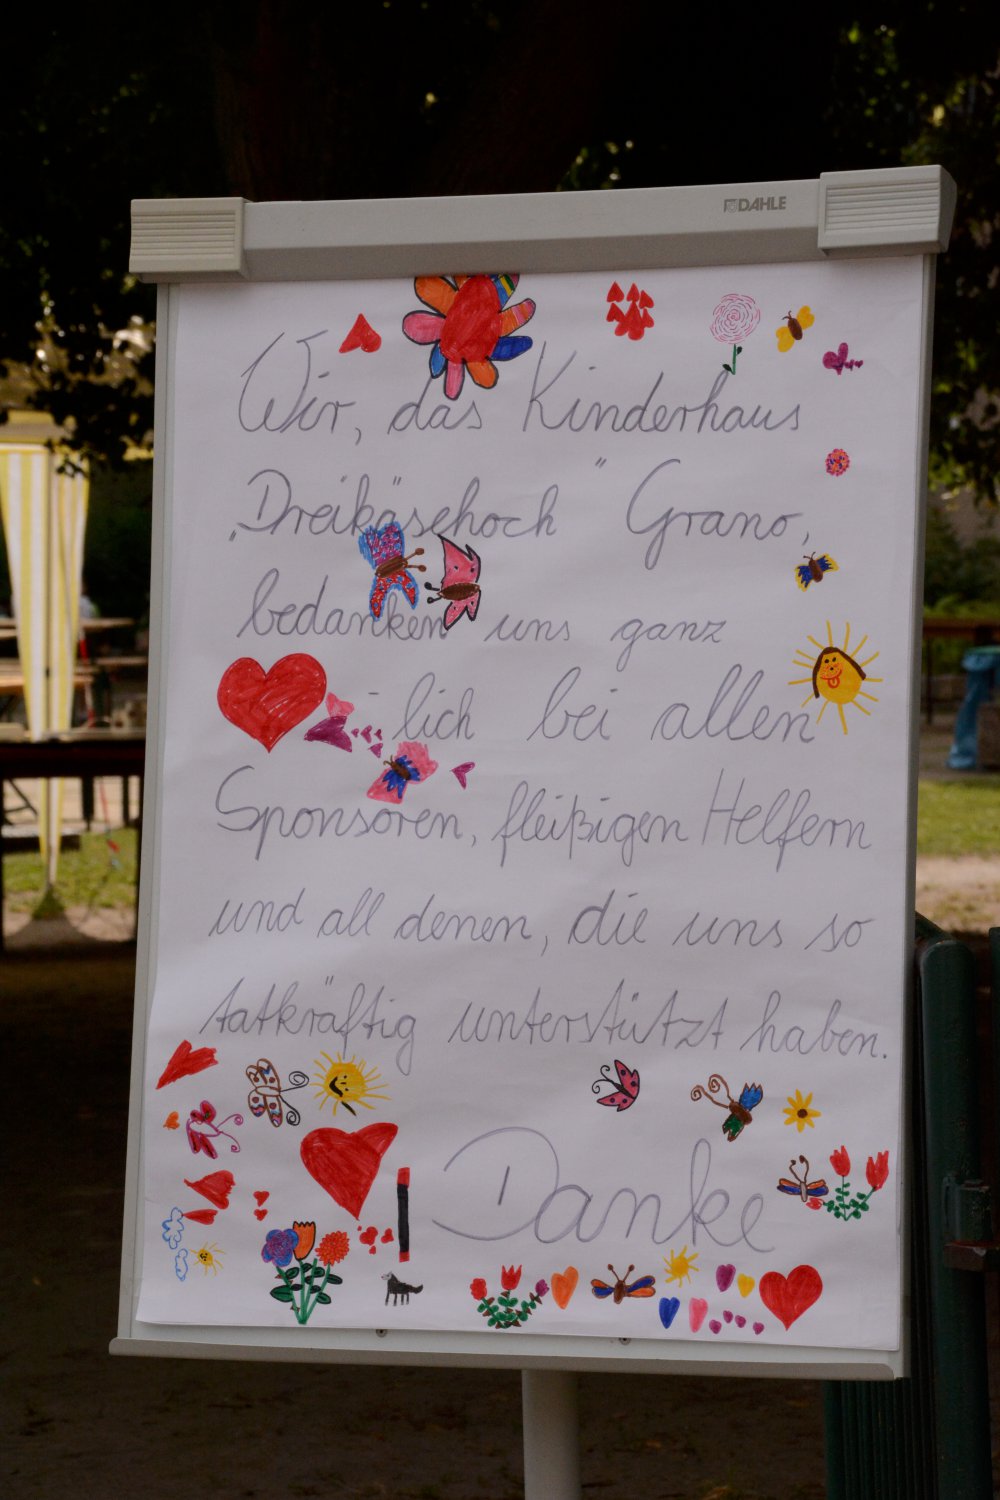 DAHLE
Wir, das Kinderhaus
„Dreikäsehoch" Grano,
bedanken uns ganz
-lich bei allen
Sponsoren, fleißigen Helfern
und all denen, die uns so
tatkräftig unterstützt haben.
Danke